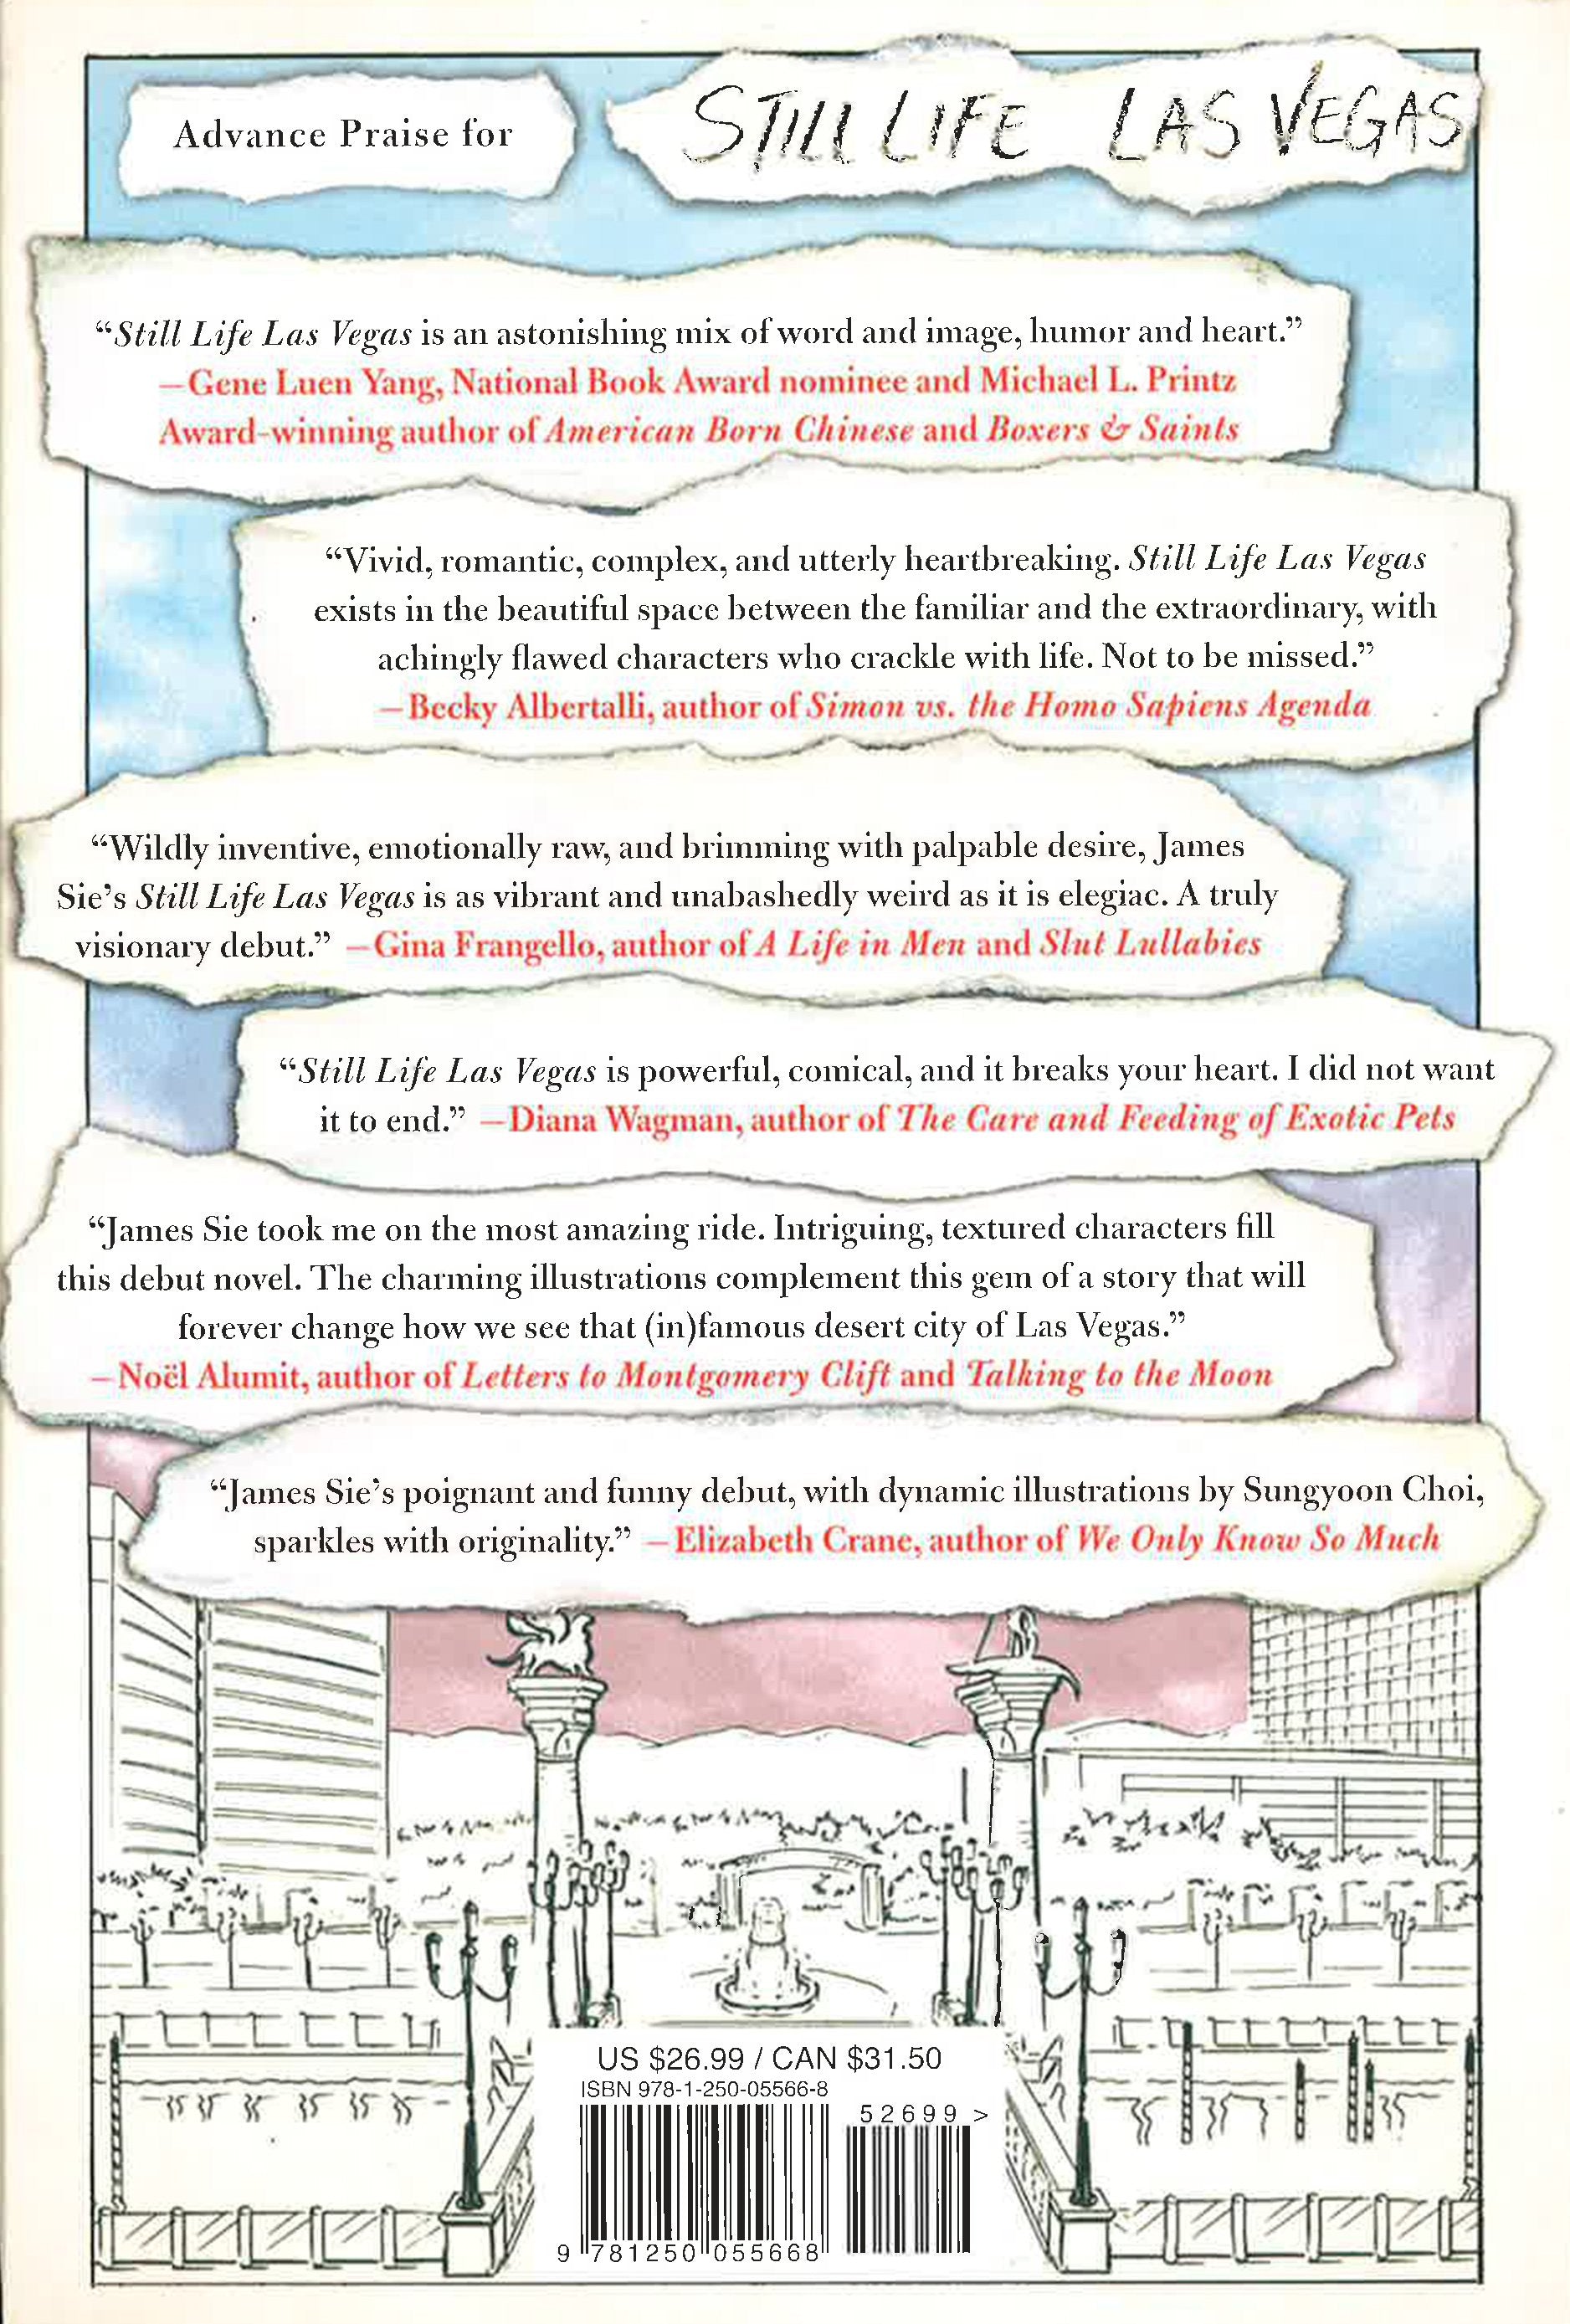 Advance Praise for STILL LIFE LAS VEGAS
“Still Life Las Vegas is an astonishing mix of word and image, humor and heart.”
—Gene Luen Yang, National Book Award nominee and Michael L. Printz
Award-winning author of American Born Chinese and Boxers & Saints
“Vivid, romantic, complex, and utterly heartbreaking. Still Life Las Vegas
exists in the beautiful space between the familiar and the extraordinary, with
achingly flawed characters who crackle with life. Not to be missed.”
—Becky Albertalli, author of Simon vs. the Homo Sapiens Agenda
“Wildly inventive, emotionally raw, and brimming with palpable desire, James
Sie’s Still Life Las Vegas is as vibrant and unabashedly weird as it is elegiac. A truly
visionary debut.” —Gina Frangello, author of A Life in Men and Slut Lullabies
“Still Life Las Vegas is powerful, comical, and it breaks your heart. I did not want
it to end.” —Diana Wagman, author of The Care and Feeding of Exotic Pets
“James Sie took me on the most amazing ride. Intriguing, textured characters fill
this debut novel. The charming illustrations complement this gem of a story that will
forever change how we see that (in)famous desert city of Las Vegas.”
—Noël Alumit, author of Letters to Montgomery Clift and Talking to the Moon
“James Sie’s poignant and funny debut, with dynamic illustrations by Sungyoon Choi,
sparkles with originality.” —Elizabeth Crane, author of We Only Know So Much
US $26.99 / CAN $31.50
ISBN 978-1-250-05566-8
52699 >
9 781250 055668